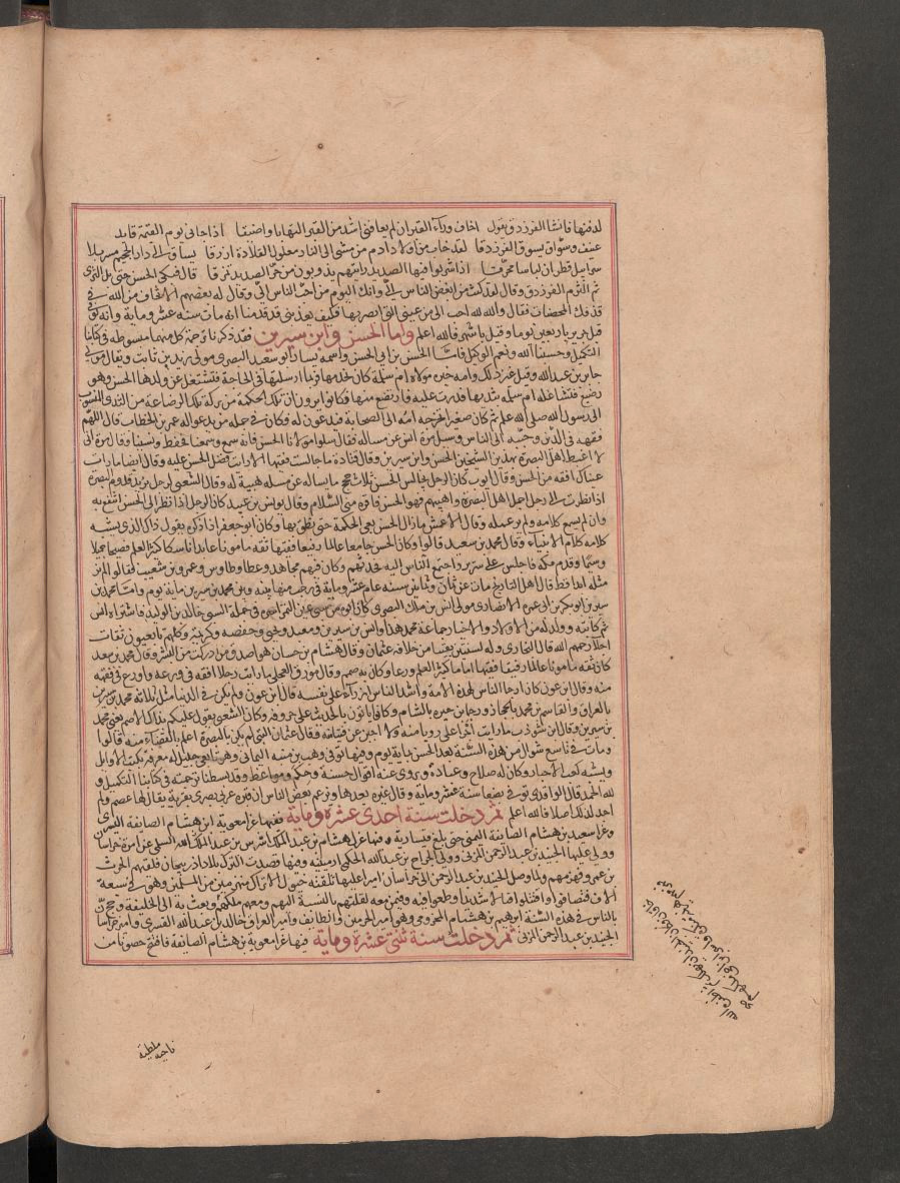 لدفنها فانشا الفرزدق يقول اخاف وراء القبر ان لم يعافني اشد من القبر التهابا واضيقا اذا جاني يوم القيمة قايد
عنيف وسواق يسوق الفرزدقا لقد خاب من اولاد ادم من مشى الى النار مغلول القلادة ازرقا يساق الى دار الجحيم مسربلا
سرابيل قطران لباسا محرقا اذا شربوا فيها الصديد رايتهم يذوبون من حر الصديد تمزقا قال فبكى الحسن حتى بل الثرى
ثم التزم الفرزدق وقال لقد كنت من ابغض الناس الي وانك اليوم من احب الناس الي وقال له بعضهم الا تخاف من الله في
قذفك المحصنات فقال والله لله احب الي من عيني التي ابصر بها فكيف يعذبني قد قدمنا انه مات سنة عشر وماية وانه توفي
قبل جرير باربعين يوما وقيل باشهر فالله اعلم واما الحسن وابن سيرين فقد ذكرنا ترجمة كل منهما مبسوطه في كتابنا
التكميل وحسبنا الله ونعم الوكيل فاما الحسن بن ابي الحسن واسمه يسار ابو سعيد البصري مولى زيد بن ثابت ويقال مولى
جابر بن عبد الله وقيل غير ذلك وامه خيره مولاة ام سلمة كان تخدمها وربما ارسلتها في الحاجة فتشتغل عن ولدها الحسن وهو
رضيع فتشاغله ام سلمه بثديها فتدر عليه فارتضع منها فكانوا يرون ان تلك الحكمة من بركة تلك الرضاعة من الثدي المنسوب
الى رسول الله صلى الله عليه ثم كان صغيرا تخرجه امه الى الصحابة فيدعون له فكان في جملة من يدعوا له عمر بن الخطاب قال اللهم
فقهه في الدين وحببه الى الناس وسيل مرة انس عن مساله فقال سلوا مولانا الحسن فانه سمع وسمعنا فحفظ ونسينا وقال مرة اني
لا اغبط اهل البصرة بهذين الشيخين الحسن وابن سيرين وقال قتادة ما جالست فقيها الا رايت فضل الحسن عليه وقال ايضا ما رات
عيناي افقه من الحسن وقال ايوب كان الرجل يجالس الحسن ثلاث حجج ما يساله عن مسله هيبة له وقال الشعبي لرجل يريد قدوم البصرة
اذا نظرت الى رجل اجمل اهل البصرة واهيبهم فهو الحسن فاقره مني السلام وقال يونس بن عبيد كان الرجل اذا نظر الى الحسن انتفع به
وان لم يسمع كلامه ولم ير عمله وقال الاعمش ما زال الحسن يعي الحكمة حتى نطق بها وكان ابو جعفر اذا ذكره يقول ذاك الذي يشبه
كلامه كلام الانبياء وقال محمد بن سعيد قالوا وكان الحسن جامعا عالما رفيعا فقيها ثقه مامونا عابدا ناسكا كثير العلم فصيحا جميلا
وسيما وقدم مكة فاجلس على سرير واجتمع الناس اليه فحدثهم وكان فيهم مجاهد وعطا وطاوس وعمرو بن شعيب فقالوا لم نر
مثله ابدا قط قال اهل التاريخ مات عن ثمان وثمانين سنه عام عشر وماية في رجب منها بينه وبين محمد بن سيرين ماية يوم واما محمد بن
سيرين ابو بكر بن ابي عمرة الانصاري مولى انس بن ملك النصري كان ابوه من سبي عين التمر اسر في جملة السبي خالد بن الوليد فاشتراه انس
ثم كاتبه وولد له من الاولاد الاخيار جماعة محمد هذا وانس بن سيرين ومعبد ويحيى وحفصه وكريمة وكلهم تابعيون ثقات
اجلا رحمهم الله قال البخاري وله لسنتين بقيتا من خلافه عثمان وقال هشام بن حسان هو اصدق من ادركت من البشر وقال محمد بن سعد
كان ثقة مامونا عالما رفيعا فقيها اماما كثير العلم ورعا وكان به صمم وقال مورق العجلي ما رايت رجلا افقه في ورعه واورع في فقهه
منه وقال ابن عون كان ارجا الناس لهذه الامة واشد الناس ازراء على نفسه قال ابن عون ولم يكن في الدنيا مثل ثلاثة محمد بن سيرين
بالعراق والقاسم بن محمد بالحجاز ورجا بن حيوه بالشام وكانوا ياتون بالحديث على حروفه وكان الشعبي يقول عليكم بذاك الاصم يعني محمد
بن سيرين وقال ابن شوذب ما رايت اجرا على رويا منه ولا اجبن عن فتيا منه وقال عثمان البتي لم يكن بالبصرة اعلم بالقضاء منه قالوا
ومات في تاسع شوال من هذه السنة بعد الحسن بماية يوم وفيها توفي وهب بن منبه اليماني وهو تابعي جليل له معرفة بكتب الاوايل
ويشبه كعب الاحبار وكان له صلاح وعبادة ويروى عنه اقوال حسنة وحكم ومواعظ وقد بسطنا ترجمته في كتابنا التكميل و
لله الحمد قال الواقدي توفي بصنعا سنة عشر وماية وقال غيره بعدها وزعم بعض الناس ان قبره غربي بصرى بقرية يقال لها عصم ولم
اجد لذلك اصلا فالله اعلم ثم دخلت سنة احدى عشرة وماية ففيها غزا معوية ابن هشام الصايفة اليسرى
وغزا سعيد بن هشام الصايفة اليمنى حتى بلغ قيسارية وفيها عزل هشام بن عبد الملك اشرس بن عبد الله السلمي عن امرة خراسا
وولى عليها الجنيد بن عبد الرحمن المزني وولي الجراح بن عبد الله الحكمي ارمينيه وفيها قصدت الترك بلاد اذربيجان فلقيهم الحرث
بن عمرو فهزمهم ولما وصل الجنيد بن عبد الرحمن الى خراسان اميرا عليها تلقته خيول الاتراك منهزمين من المسلمين وهو في سبعة
الاف فتصافوا واقتتلوا قتالا شديدا وطمعوا فيه وفيمن معه لقلتهم بالنسبة اليهم ومعهم ملكهم وبعث به الى الخليفة وحج
بالناس في هذه السنة ابرهيم بن هشام المخزومي وهو امير الحرمين والطايف وامير العراق خالد بن عبد الله القسري وامير خراسا
الجنيد بن عبد الرحمن المزني ثم دخلت سنة ثنتي عشرة وماية فيها غزا معوية بن هشام الصايفة فافتتح حصونا من
ناحيه ملطية